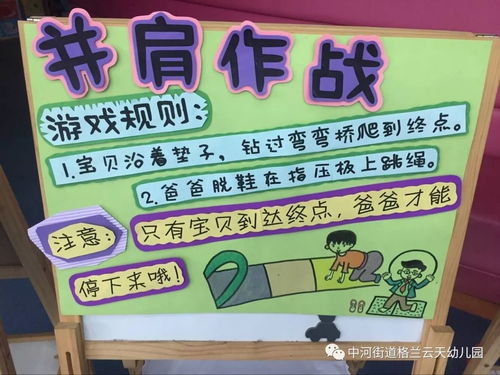 并肩作战
游戏规则:
1.宝贝沿着垫子，钻过弯弯桥爬到终点。
2.爸爸脱鞋在指压板上跳绳。
注意:
只有宝贝到达终点，爸爸才能
停下来哦!
中河街道格兰云天幼儿园